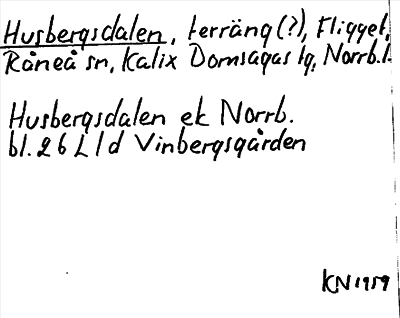 Husbergsdalen, terräng (?), Fligget,
Råneå sn, Kalix Domsagas tg, Norrb. l.
Husbergsdalen ek Norrb.
bl. 26 L 1 d Vinbergsgården
KN 1959